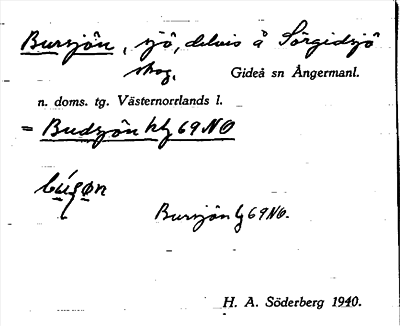 Bursjön, sjö, delvis å Sörgidsjö
skog.
Gideå sn Ångermanl.
n. doms. tg. Västernorrlands l.
= Budsjön hfg 69 NO
Bursjön fg 69 NO.
H. A. Söderberg 1940.